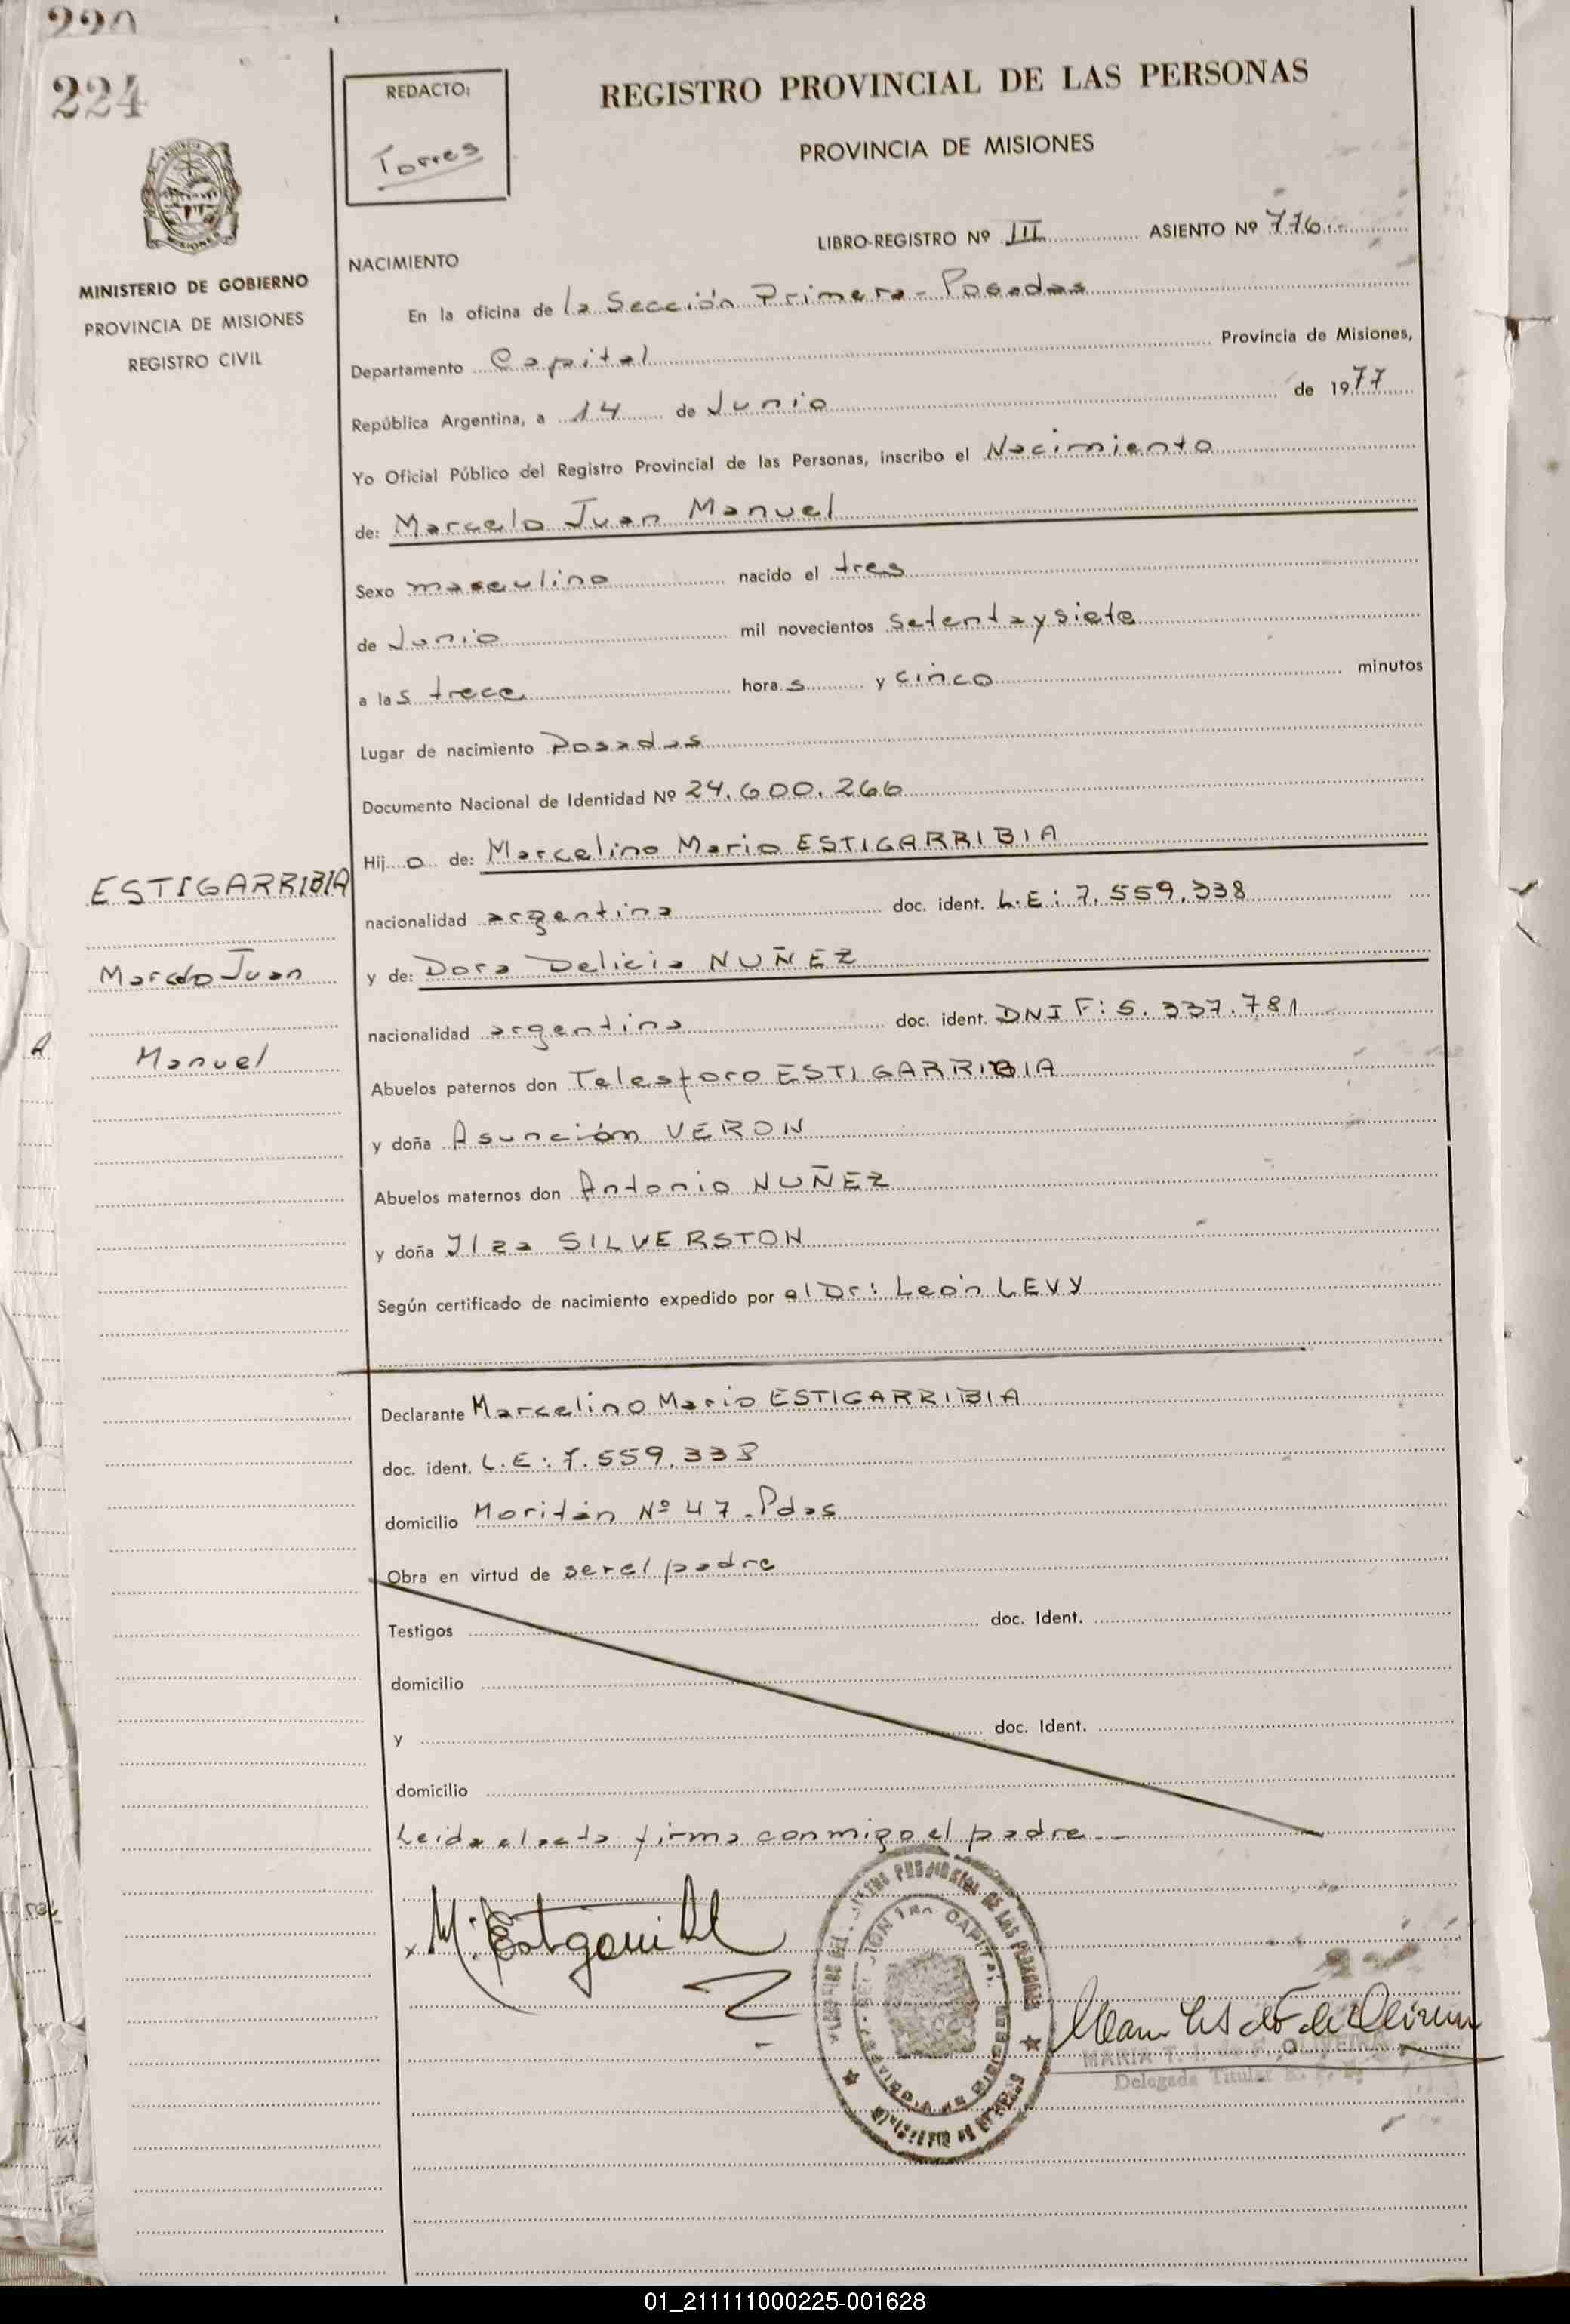 220
224
REDACTO:
Torres
REGISTRO PROVINCIAL DE LAS PERSONAS
PROVINCIA DE MISIONES
MISIONES
MINISTERIO DE GOBIERNO
PROVINCIA DE MISIONES
REGISTRO CIVIL
LIBRO-REGISTRO Nº III ASIENTO Nº 776.-
NACIMIENTO
En la oficina de la Sección Primera - Posadas
Departamento Capital Provincia de Misiones,
República Argentina, a 14 de Junio de 1977
Yo Oficial Público del Registro Provincial de las Personas, inscribo el Nacimiento
de: Marcelo Juan Manuel
Sexo masculino nacido el tres
de Junio mil novecientos setenta y siete
a las trece horas y cinco minutos
Lugar de nacimiento Posadas
Documento Nacional de Identidad Nº 24.600.266
Hijo de: Marcelino Mario ESTIGARRIBIA
ESTIGARRIBIA
nacionalidad argentina doc. ident. L.E: 7.559.338
Marcelo Juan
y de: Dora Delicia NUÑEZ
nacionalidad argentina doc. ident. DNI F: 5.337.781
Manuel
Abuelos paternos don Telesforo ESTIGARRIBIA
y doña Asunción VERON
Abuelos maternos don Antonio NUÑEZ
y doña Ilza SILVERSTON
Según certificado de nacimiento expedido por el Dr: León LEVY
Declarante Marcelino Mario ESTIGARRIBIA
doc. ident. L.E: 7.559.338
domicilio Moritán Nº 47 - Pdas
Obra en virtud de ser el padre
Testigos doc. Ident.
domicilio
y doc. Ident.
domicilio
Leida el acta firma conmigo el padre.--
M. Estigarribia
SECCION 1ra. CAPITAL
MINISTERIO DE GOBIERNO
MARIA T. I. de F. OLIVEIRA
Delegada Titular
01_211111000225-001628